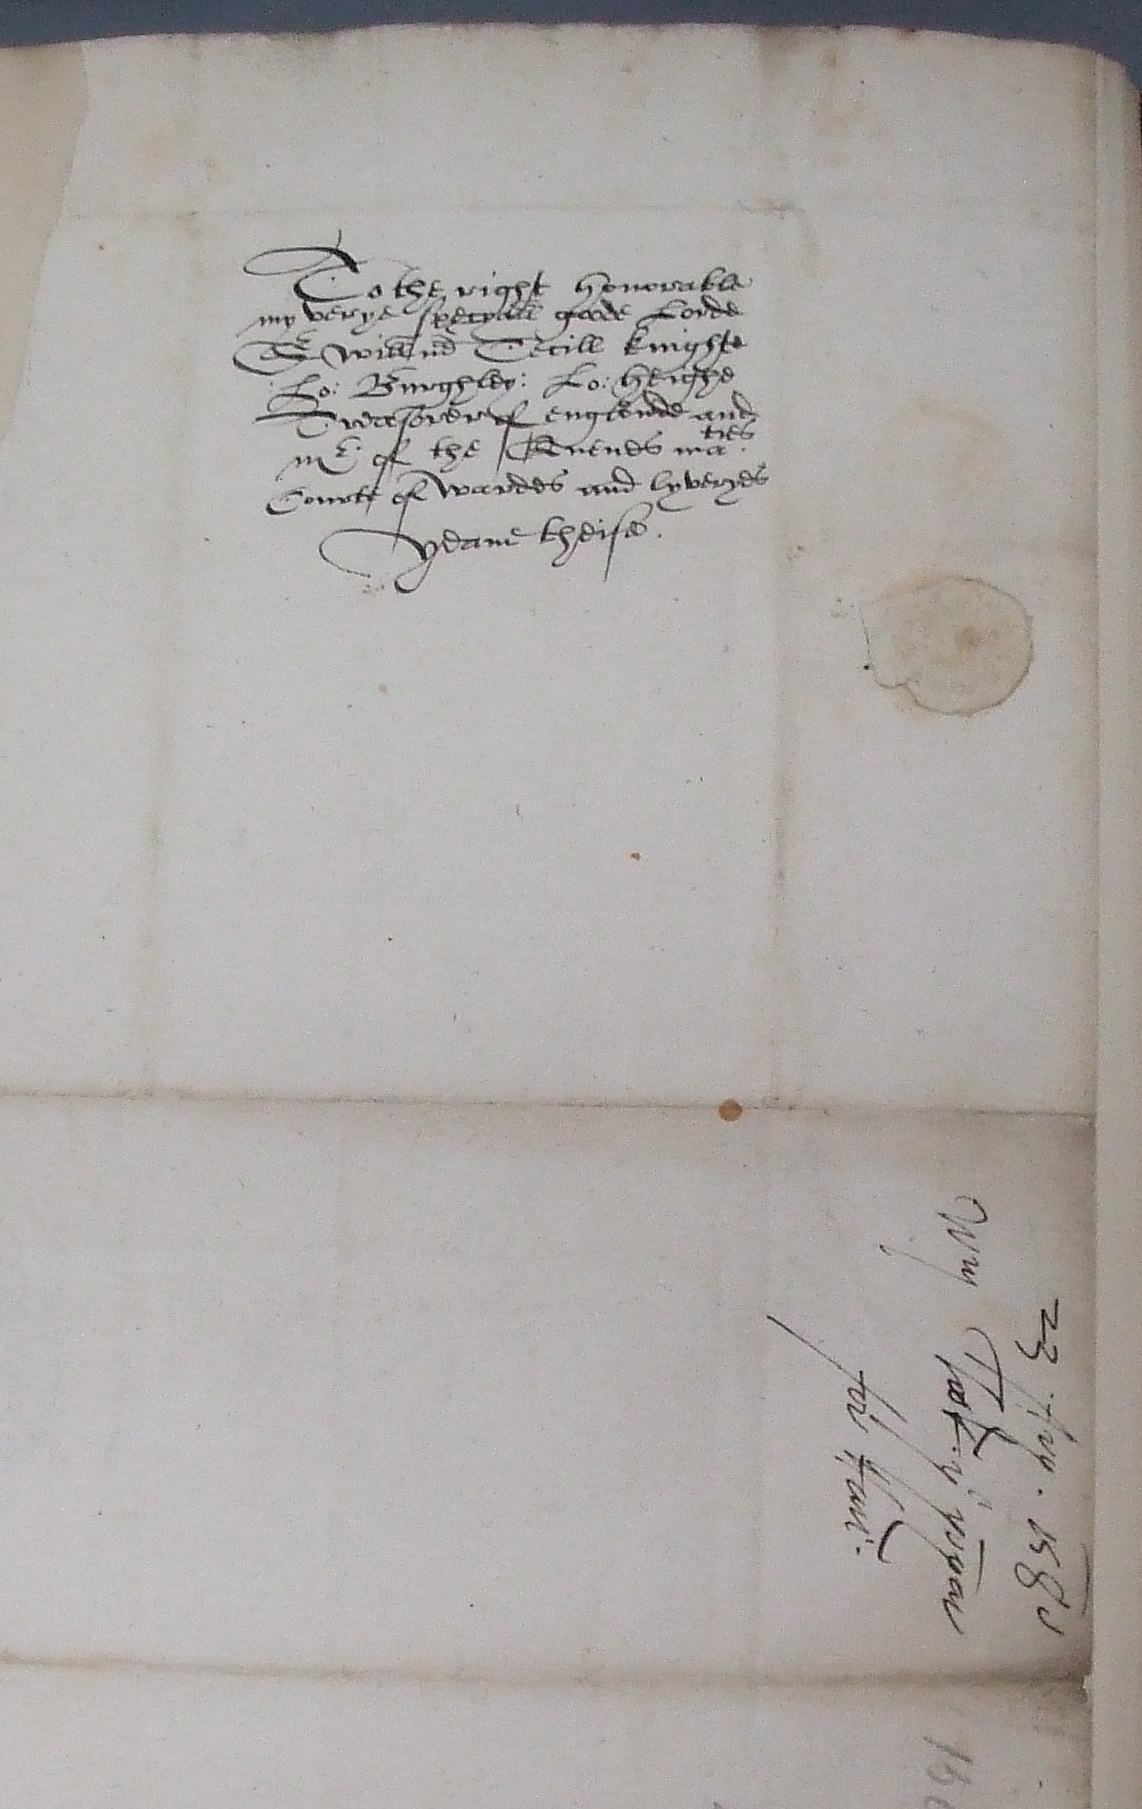 To the right honorable
my verye specyall goode Lorde
Sr Willm Cecill knighte
Lo: Burghley: Lo: heighe
Treasorer of englande and
mr. of the Quenes ma.ties
Courte of wardes and lyveryes
yeave theise.
23 1580
Wm
for